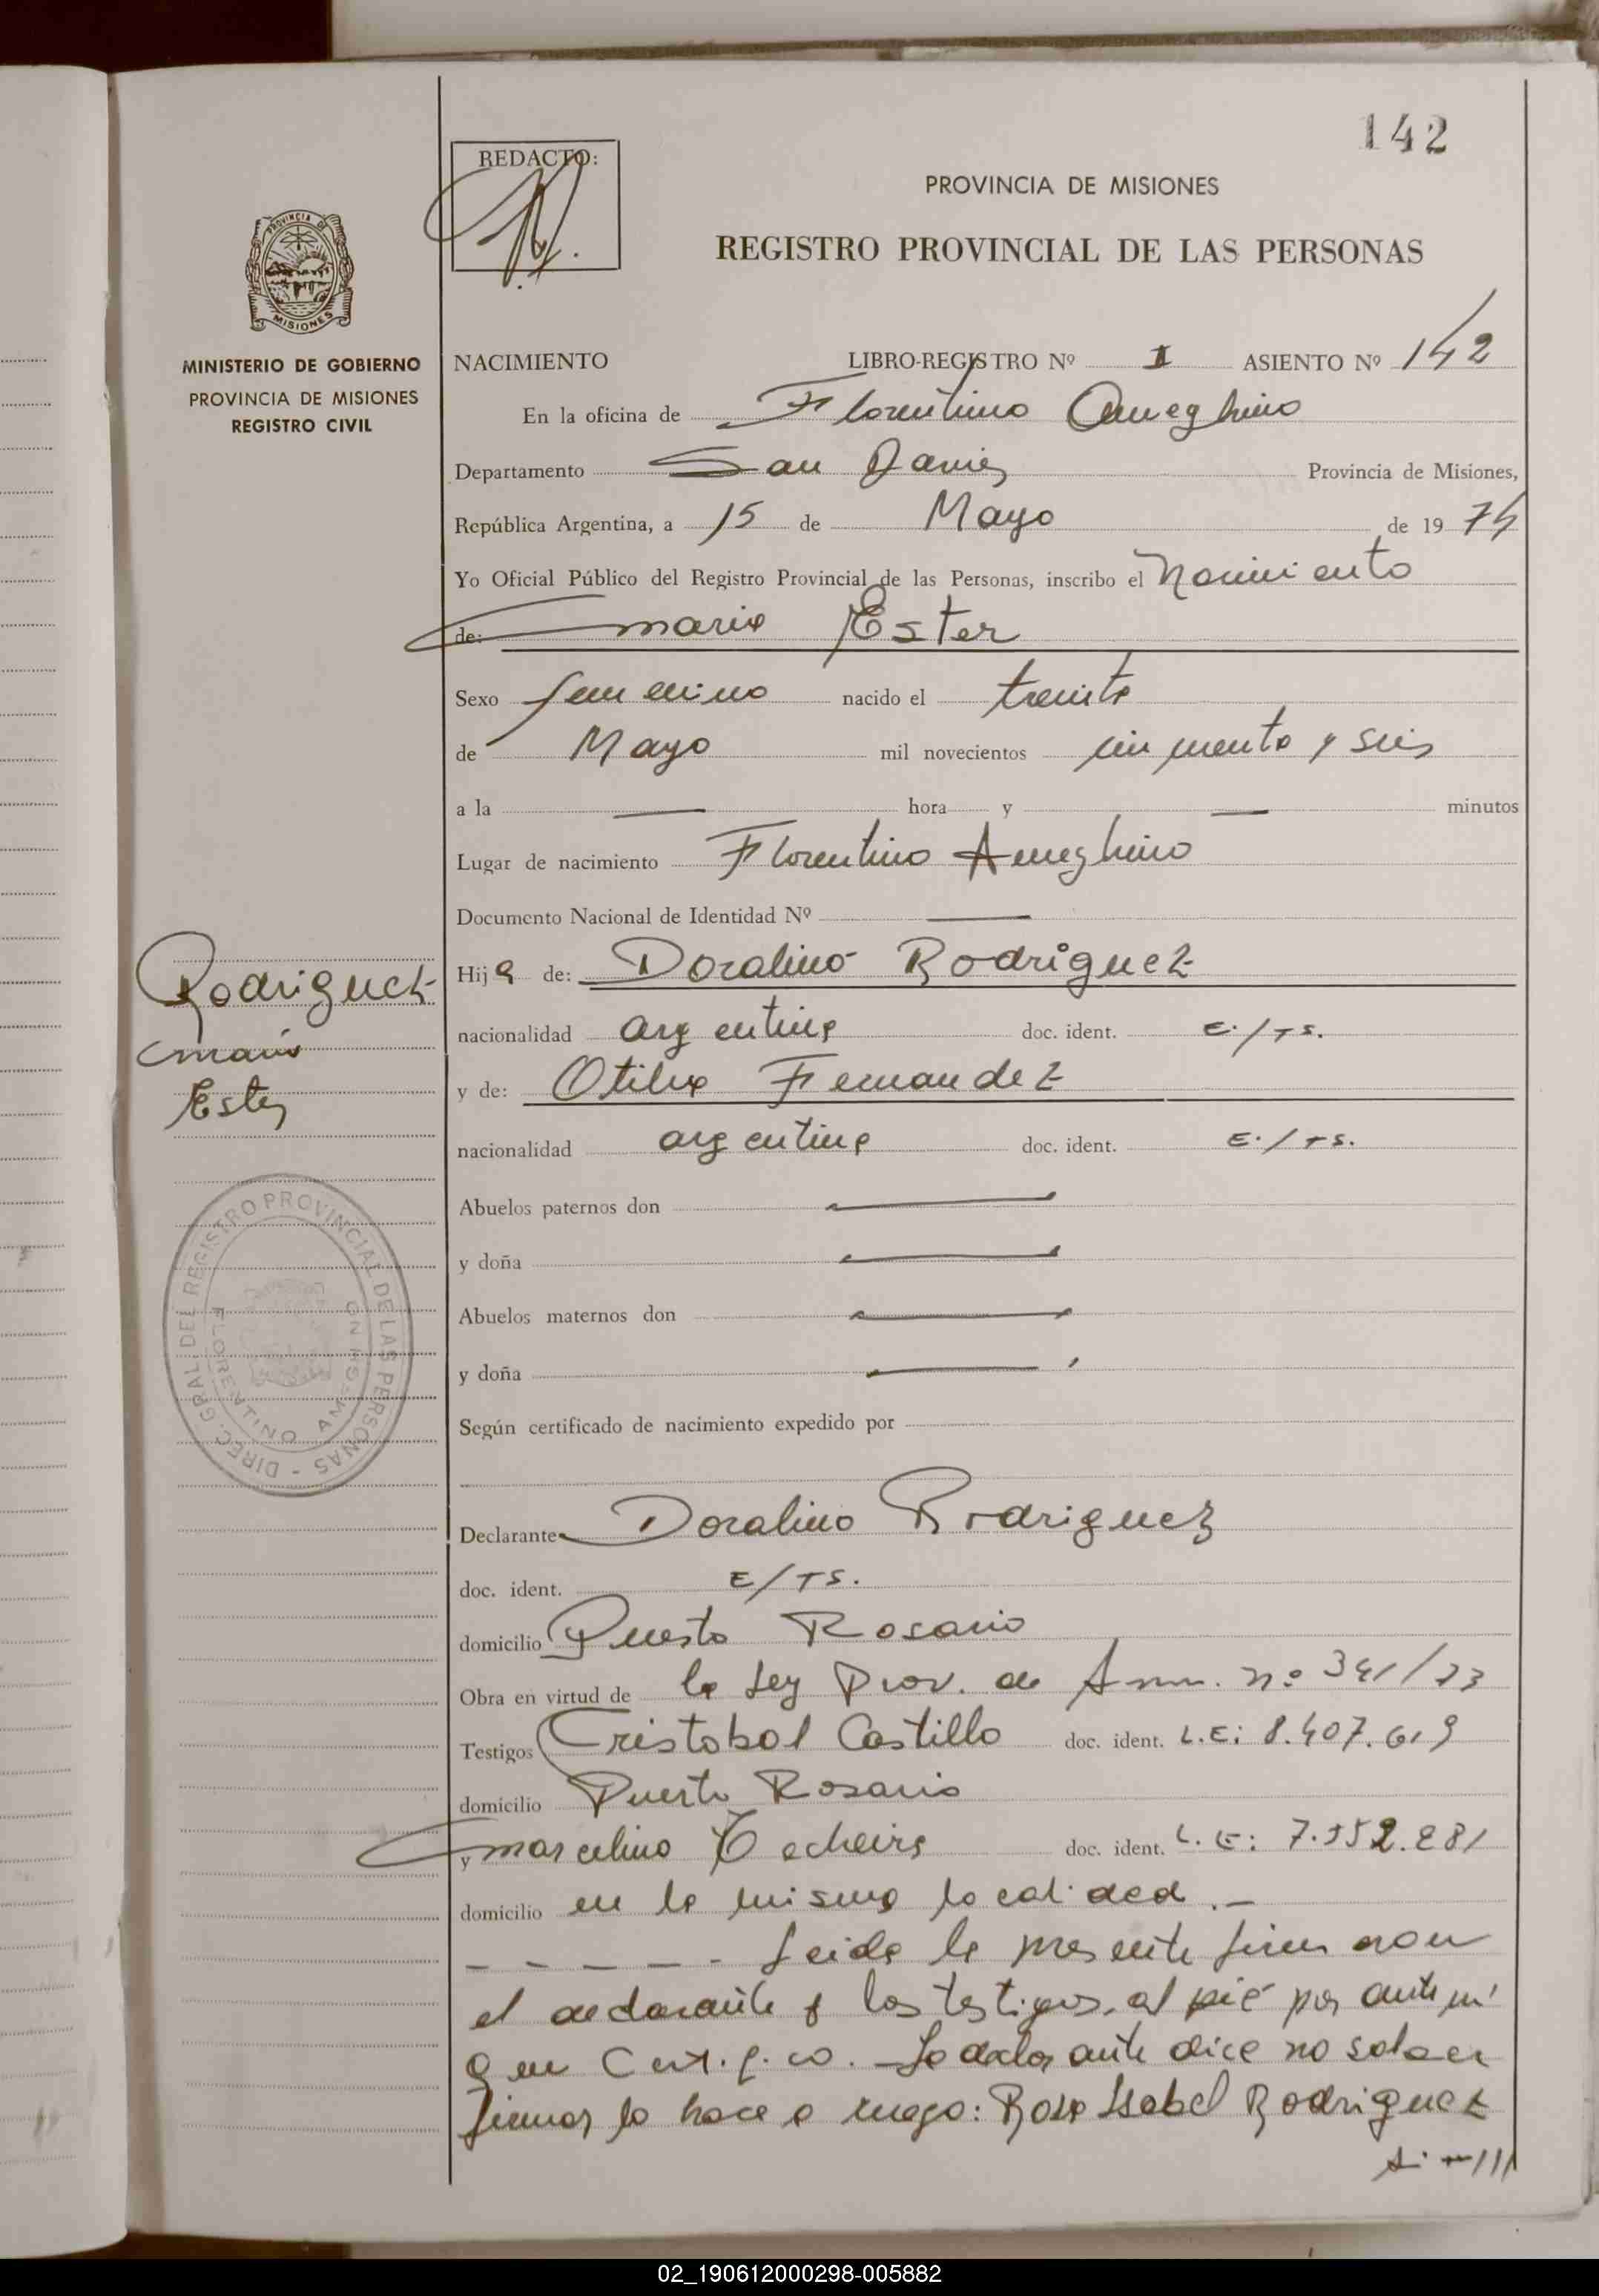 142
REDACTO:
PROVINCIA DE MISIONES
REGISTRO PROVINCIAL DE LAS PERSONAS
PROVINCIA DE
MISIONES
MINISTERIO DE GOBIERNO
PROVINCIA DE MISIONES
REGISTRO CIVIL
NACIMIENTO LIBRO-REGISTRO Nº I ASIENTO Nº 142
En la oficina de Florentino Ameghino
Departamento San Javier Provincia de Misiones,
República Argentina, a 15 de Mayo de 19 74
Yo Oficial Público del Registro Provincial de las Personas, inscribo el Nacimiento
de: Maria Ester
Sexo femenino nacido el treinta
de Mayo mil novecientos cincuenta y seis
a la — hora y — minutos
Lugar de nacimiento Florentino Ameghino
Documento Nacional de Identidad Nº —
Hija de: Doralino Rodriguez
nacionalidad argentina doc. ident. E./TS.
y de: Otilia Fernandez
nacionalidad argentina doc. ident. E./TS.
Rodriguez
Maria
Ester
Abuelos paternos don —
y doña —
Abuelos maternos don —
y doña —
Según certificado de nacimiento expedido por
DIREC. GRAL DEL REGISTRO PROVINCIAL DE LAS PERSONAS -
FLORENTINO AMEGHINO
Declarante Doralino Rodriguez
doc. ident. E/TS.
domicilio Puerto Rosario
Obra en virtud de la Ley Prov. de Amn. nº 341/73
Testigos Cristobal Castillo doc. ident. L.E: 8.407.619
domicilio Puerto Rosario
y Marcelino doc. ident. L.E: 7.552.281
domicilio en la misma localidad.—
— — — — — . Leida la presente firman con
el declarante y los testigos, al pié por ante mi
que Cert. f. co. —La declarante dice no saber
firmar lo hace a ruego: Rosa Isabel Rodriguez
02_190612000298-005882